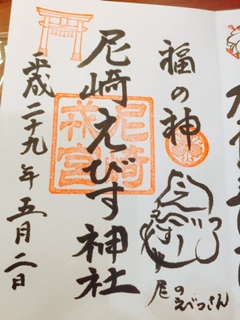 福の神
尼崎えびす神社
尼崎
戎宮
平成二十九年五月二日
尼のえべっさん